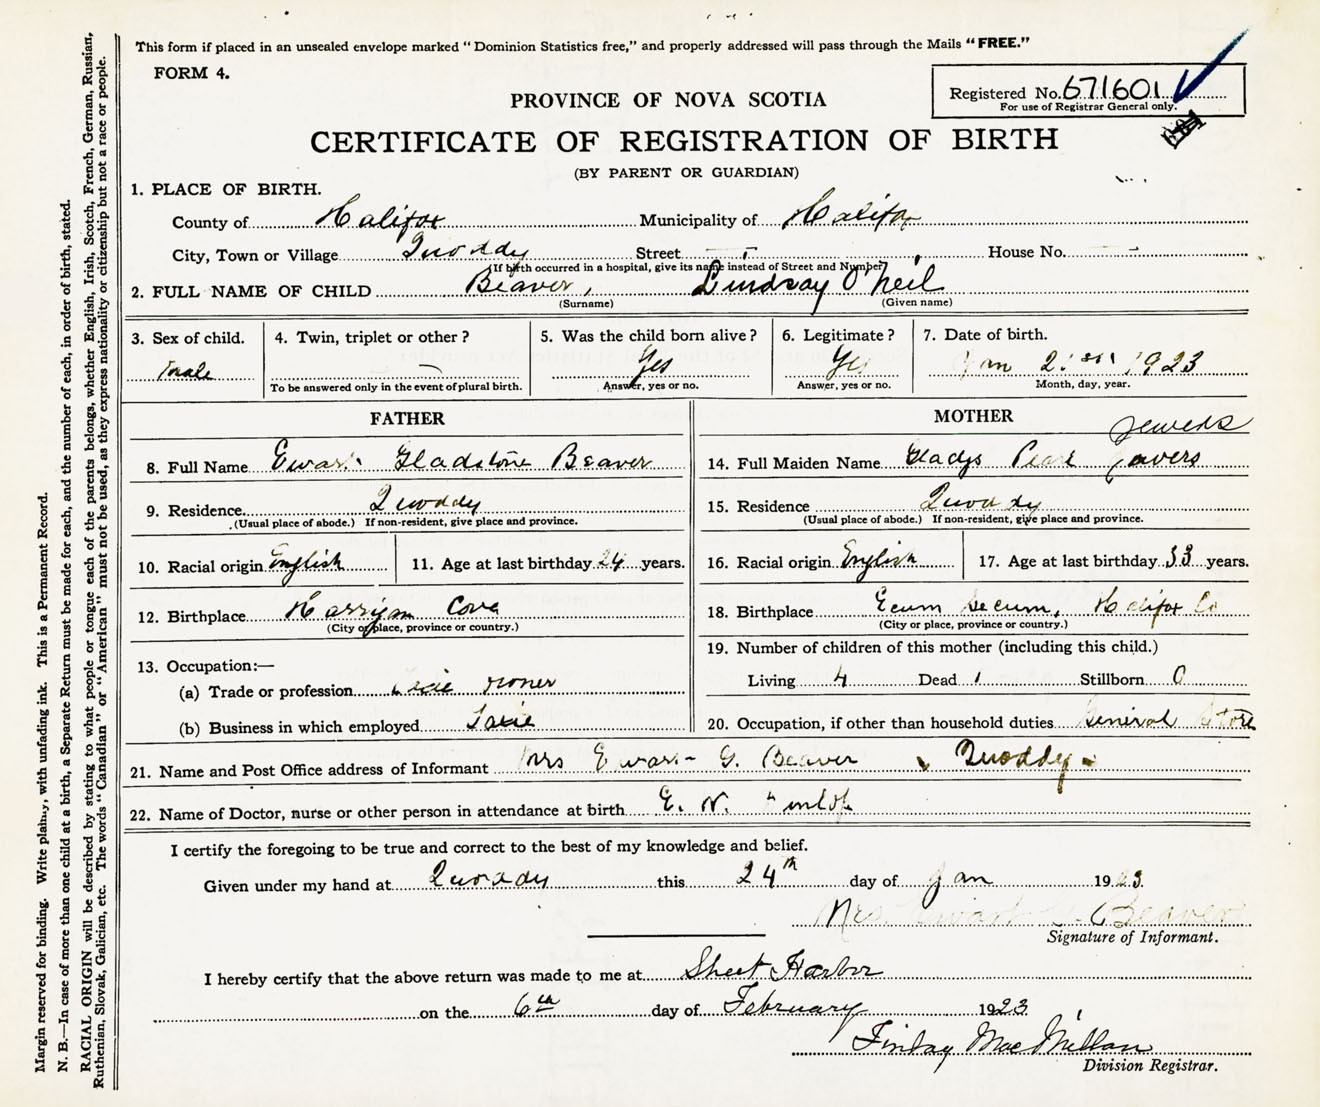 This form if placed in an unsealed envelope marked “Dominion Statistics free,” and properly addressed will pass through the Mails “FREE.”
FORM 4.
Registered No. 671601
For use of Registrar General only.
PROVINCE OF NOVA SCOTIA
CERTIFICATE OF REGISTRATION OF BIRTH
(BY PARENT OR GUARDIAN)
1. PLACE OF BIRTH.
County of Halifax Municipality of Halifax
City, Town or Village Quoddy Street — House No. —
(If birth occurred in a hospital, give its name instead of Street and Number)
2. FULL NAME OF CHILD Beaver, Lindsay O'Neil
(Surname) (Given name)
3. Sex of child. 4. Twin, triplet or other? 5. Was the child born alive? 6. Legitimate? 7. Date of birth.
male — Yes Yes Jan 21st 1923
To be answered only in the event of plural birth. Answer, yes or no. Answer, yes or no. Month, day, year.
FATHER
8. Full Name Ewart Gladstone Beaver
9. Residence Quoddy
(Usual place of abode.) If non-resident, give place and province.
10. Racial origin English 11. Age at last birthday 24 years.
12. Birthplace Harrigan Cove
(City or place, province or country.)
13. Occupation:—
(a) Trade or profession
(b) Business in which employed
MOTHER
Jewers
14. Full Maiden Name Gladys Pearl Javers
15. Residence Quoddy
(Usual place of abode.) If non-resident, give place and province.
16. Racial origin English 17. Age at last birthday 33 years.
18. Birthplace Ecum Secum, Halifax Co
(City or place, province or country.)
19. Number of children of this mother (including this child.)
Living 4 Dead 1 Stillborn 0
20. Occupation, if other than household duties General Store
21. Name and Post Office address of Informant Mrs Ewart G. Beaver, Quoddy.
22. Name of Doctor, nurse or other person in attendance at birth E. N.
I certify the foregoing to be true and correct to the best of my knowledge and belief.
Given under my hand at Quoddy this 24th day of Jan 1923.
Mrs. Ewart G. Beaver
Signature of Informant.
I hereby certify that the above return was made to me at Sheet Harbor
on the 6th day of February 1923
Finlay MacMillan
Division Registrar.
Margin reserved for binding. Write plainly, with unfading ink. This is a Permanent Record.
N. B.—In case of more than one child at a birth, a Separate Return must be made for each, and the number of each, in order of birth, stated.
RACIAL ORIGIN will be described by stating to what people or tongue each of the parents belongs, whether English, Irish, Scotch, French, German, Russian,
Ruthenian, Slovak, Galician, etc. The words “Canadian” or “American” must not be used, as they express nationality or citizenship but not a race or people.